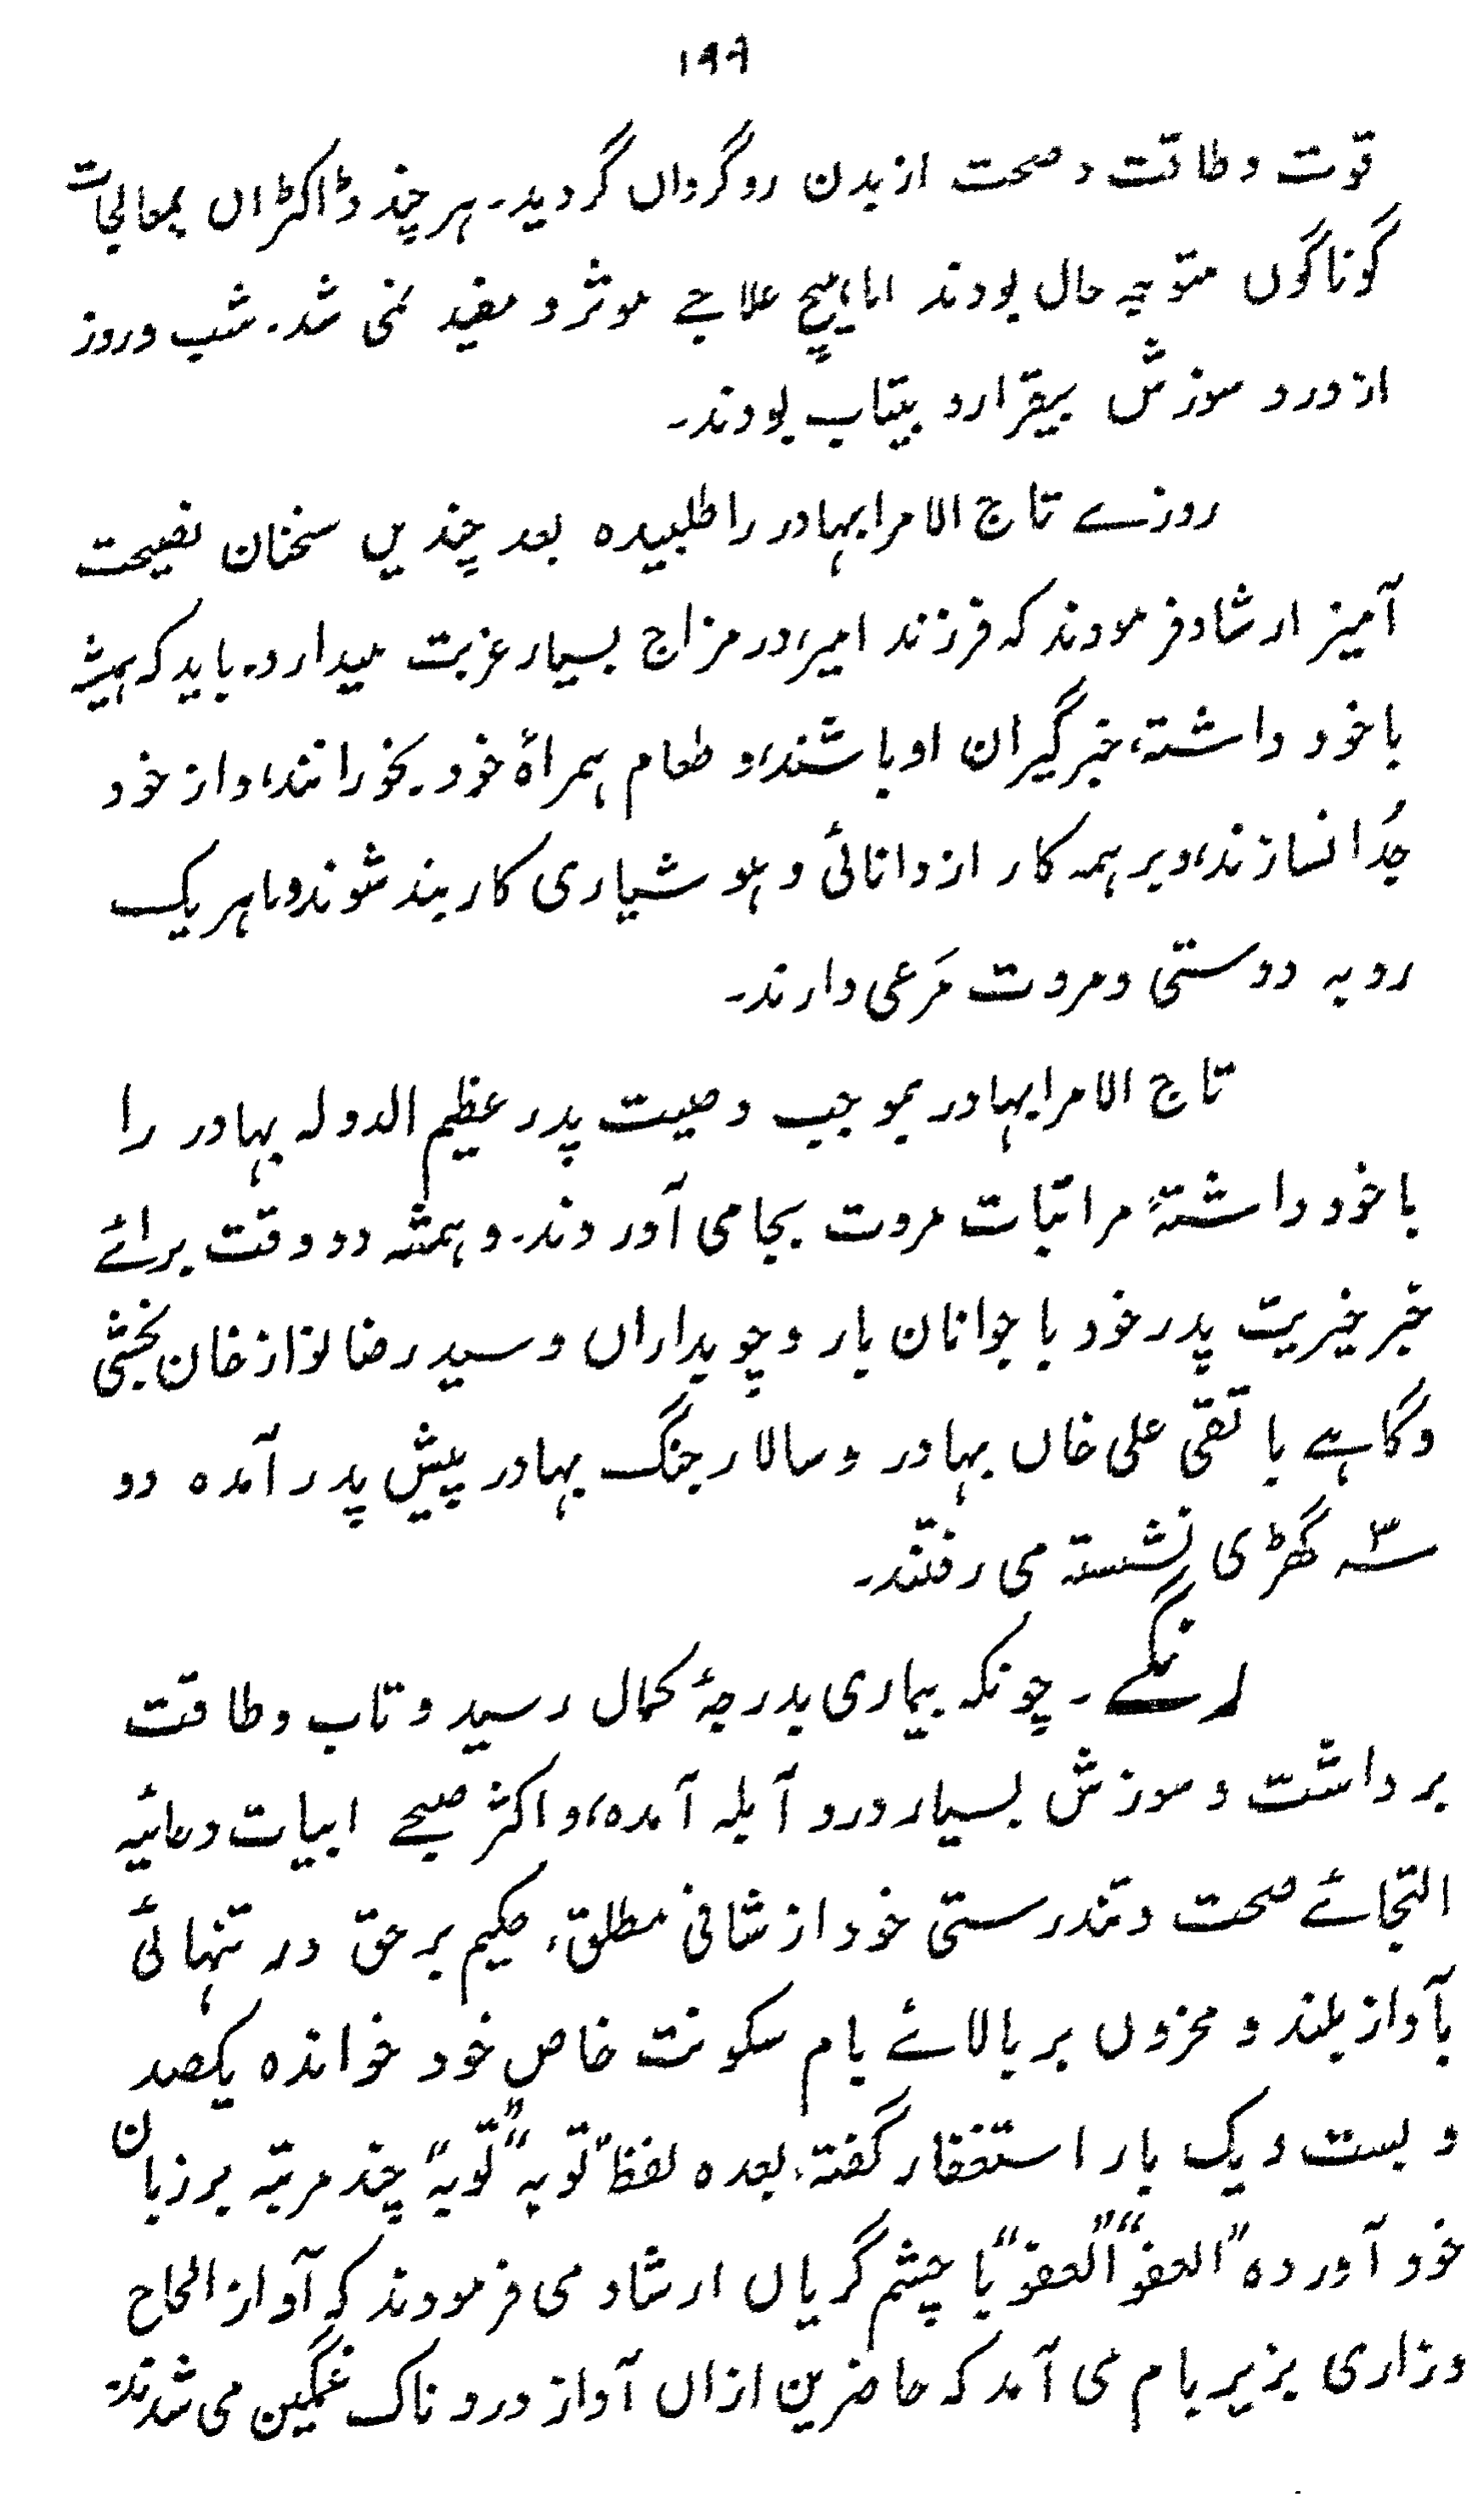 ۱۹۹
قوت و طاقت و صحت از بدن روگرداں گردید۔ ہر چند ڈاکٹراں بمعالجات
گوناگوں متوجہ حال بودند اما ہیچ علاجے موثر و مفید نمی شد۔ شب و روز
از درد و سوزش بیقرار و بیتاب بودند۔
روزے تاج الامرا بہادر را طلبیدہ بعد چندیں سخنان نصیحت
آمیز ارشاد فرمودند کہ فرزند امیر، در مزاج بسیار غربت میدارد، باید کہ ہمیشہ
با خود داشتہ، خبرگیران او باشند، و طعام ہمراۂ خود بخورانند، و از خود
جُدا نسازند، و بر ہمہ کار از دانائی و ہوشیاری کاربند شوند و با ہر یک
رویہ دوستی و مروت مَرعی دارند۔
تاج الامرا بہادر بموجب وصیت پدر عظیم الدولہ بہادر را
با خود داشتہٗ مراتبات مروت بجا می آوردند۔ و ہمشہ دو وقت برائے
خبر خیریت پدر خود با جوانان بار و چوبداراں و سید رضا نواز خان بخشی
و گاہے با تقی علی خاں بہادر و سالار جنگ بہادر پیش پدر آمدہ دو
سہ ۳ گھڑی نشستہ می رفتند۔
رنگے۔ چونکہ بیماری بدرجۂ کمال رسید و تاب و طاقت
برداشت و سوزش بسیار و رو آبلہ آمدہ، و اکثر صبحے ابیات دعائیہ
التجائے صحت و تندرستی خود از شافی مطلق، حکیم برحق در تنہائی
بآواز بلند و محزوں بر بالائے بام سکونت خاص خود خواندہ یکصد
و بست و یک بار استغفار گفتہ، بعدہ لفظ "توبہ" "توبہ" چند مرتبہ بر زبان
خود آوردہ "العفو" "العفو" با چشم گریاں ارشاد می فرمودند کہ آواز الحاح
و زاری بزیر بام می آمد کہ حاضرین ازاں آواز دردناک غمگین می شدند۔